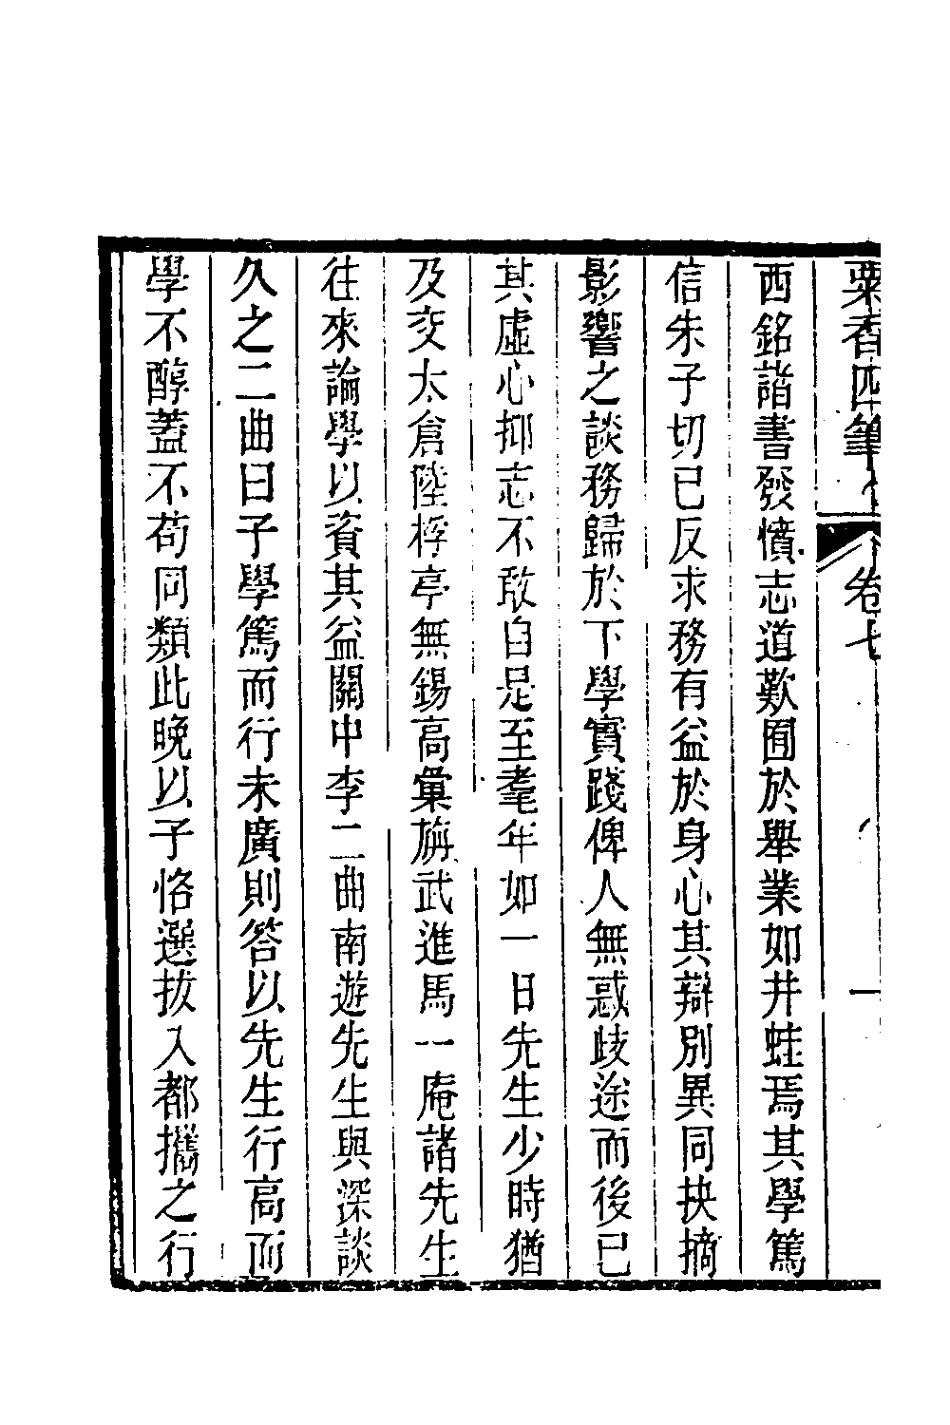 粟香四筆 卷七 一
西銘諸書發憤志道歎囿於舉業如井蛙焉其學篤
信朱子切已反求務有益於身心其辯別異同抉摘
影響之談務歸於下學實踐俾人無惑歧途而後已
其虛心抑志不敢自是至耄年如一日先生少時猶
及交太倉陸桴亭無錫高彙旃武進馬一庵諸先生
往來論學以資其益關中李二曲南遊先生與深談
久之二曲曰子學篤而行未廣則答以先生行高而
學不醇蓋不苟同類此晚以子恪選拔入都攜之行